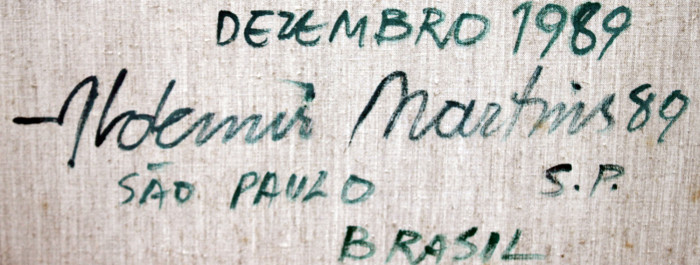 DEZEMBRO 1989
Aldemir Martins 89
SÃO PAULO S.P.
BRASIL